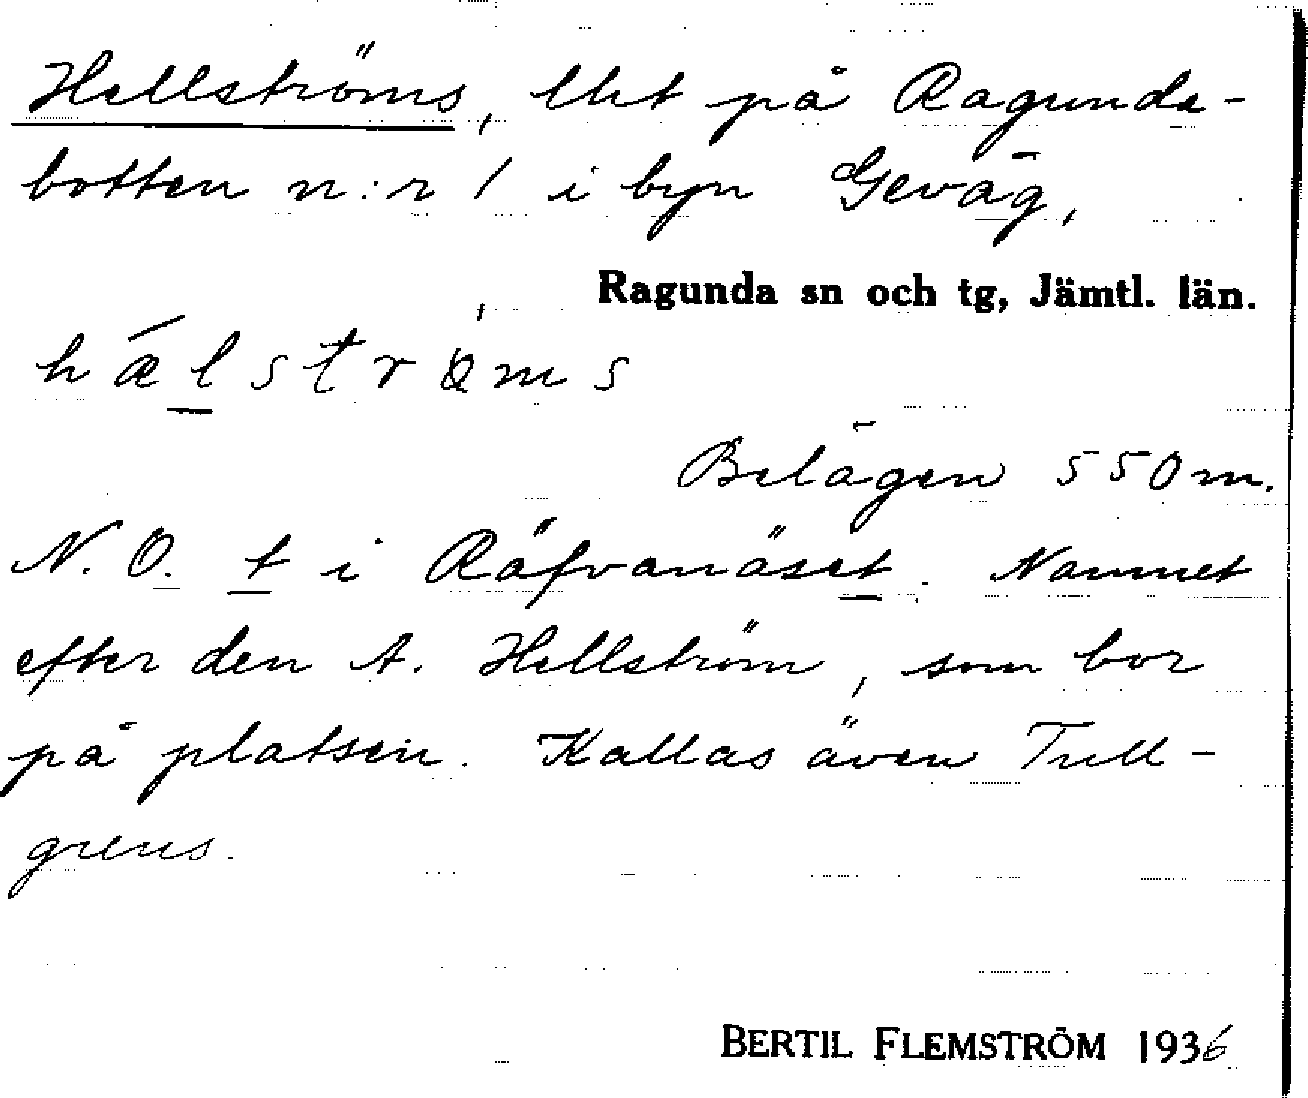 Hellströms, lht på Ragunda-
botten n:r 1 i byn Gevåg,
Ragunda sn och tg, Jämtl. län.
hǽlströms
Belägen 550 m.
N.O. t i Räfvanäset. Namnet
efter den A. Hellström, som bor
på platsen. Kallas även Tull-
grens.
BERTIL FLEMSTRÖM 1936